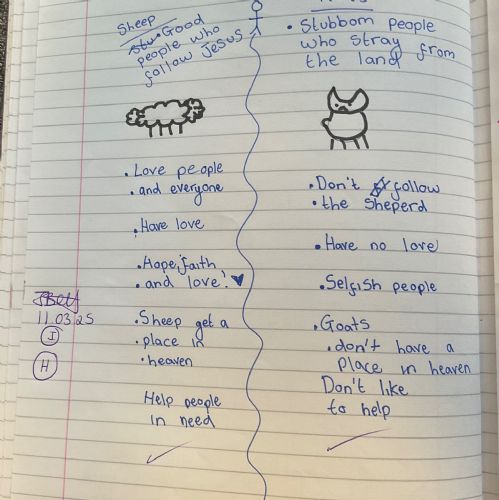 Sheep
Good
people who
follow Jesus
• Love people
• and everyone
• Have love
• Hope, faith
• and love!
• Sheep get a
• place in
• heaven
Help people
in need
• Stubborn people
who stray from
the land
• Don't follow
• the Sheperd
• Have no love
• Selfish people
• Goats
• don't have a
Place in heaven
Don't like
to help
11.03.25
I
H